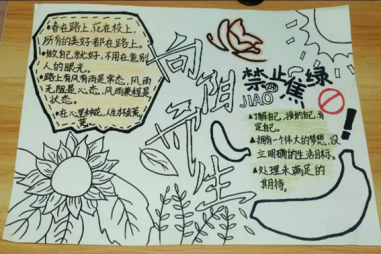 •春在路上,花在枝上,
所有的美好都在路上。
•做自己就好,不用在意别
人的眼光。
•路上有风有雨是常态,风雨
无阻是心态,风雨兼程是
状态。
•在心里种花,人生才不会荒
芜。
向阳而生
禁止蕉绿
JIAO
了解自己,接纳自己,肯
定自己。
拥有一个伟大的梦想,设
立明确的生活目标。
处理未满足的
期待。